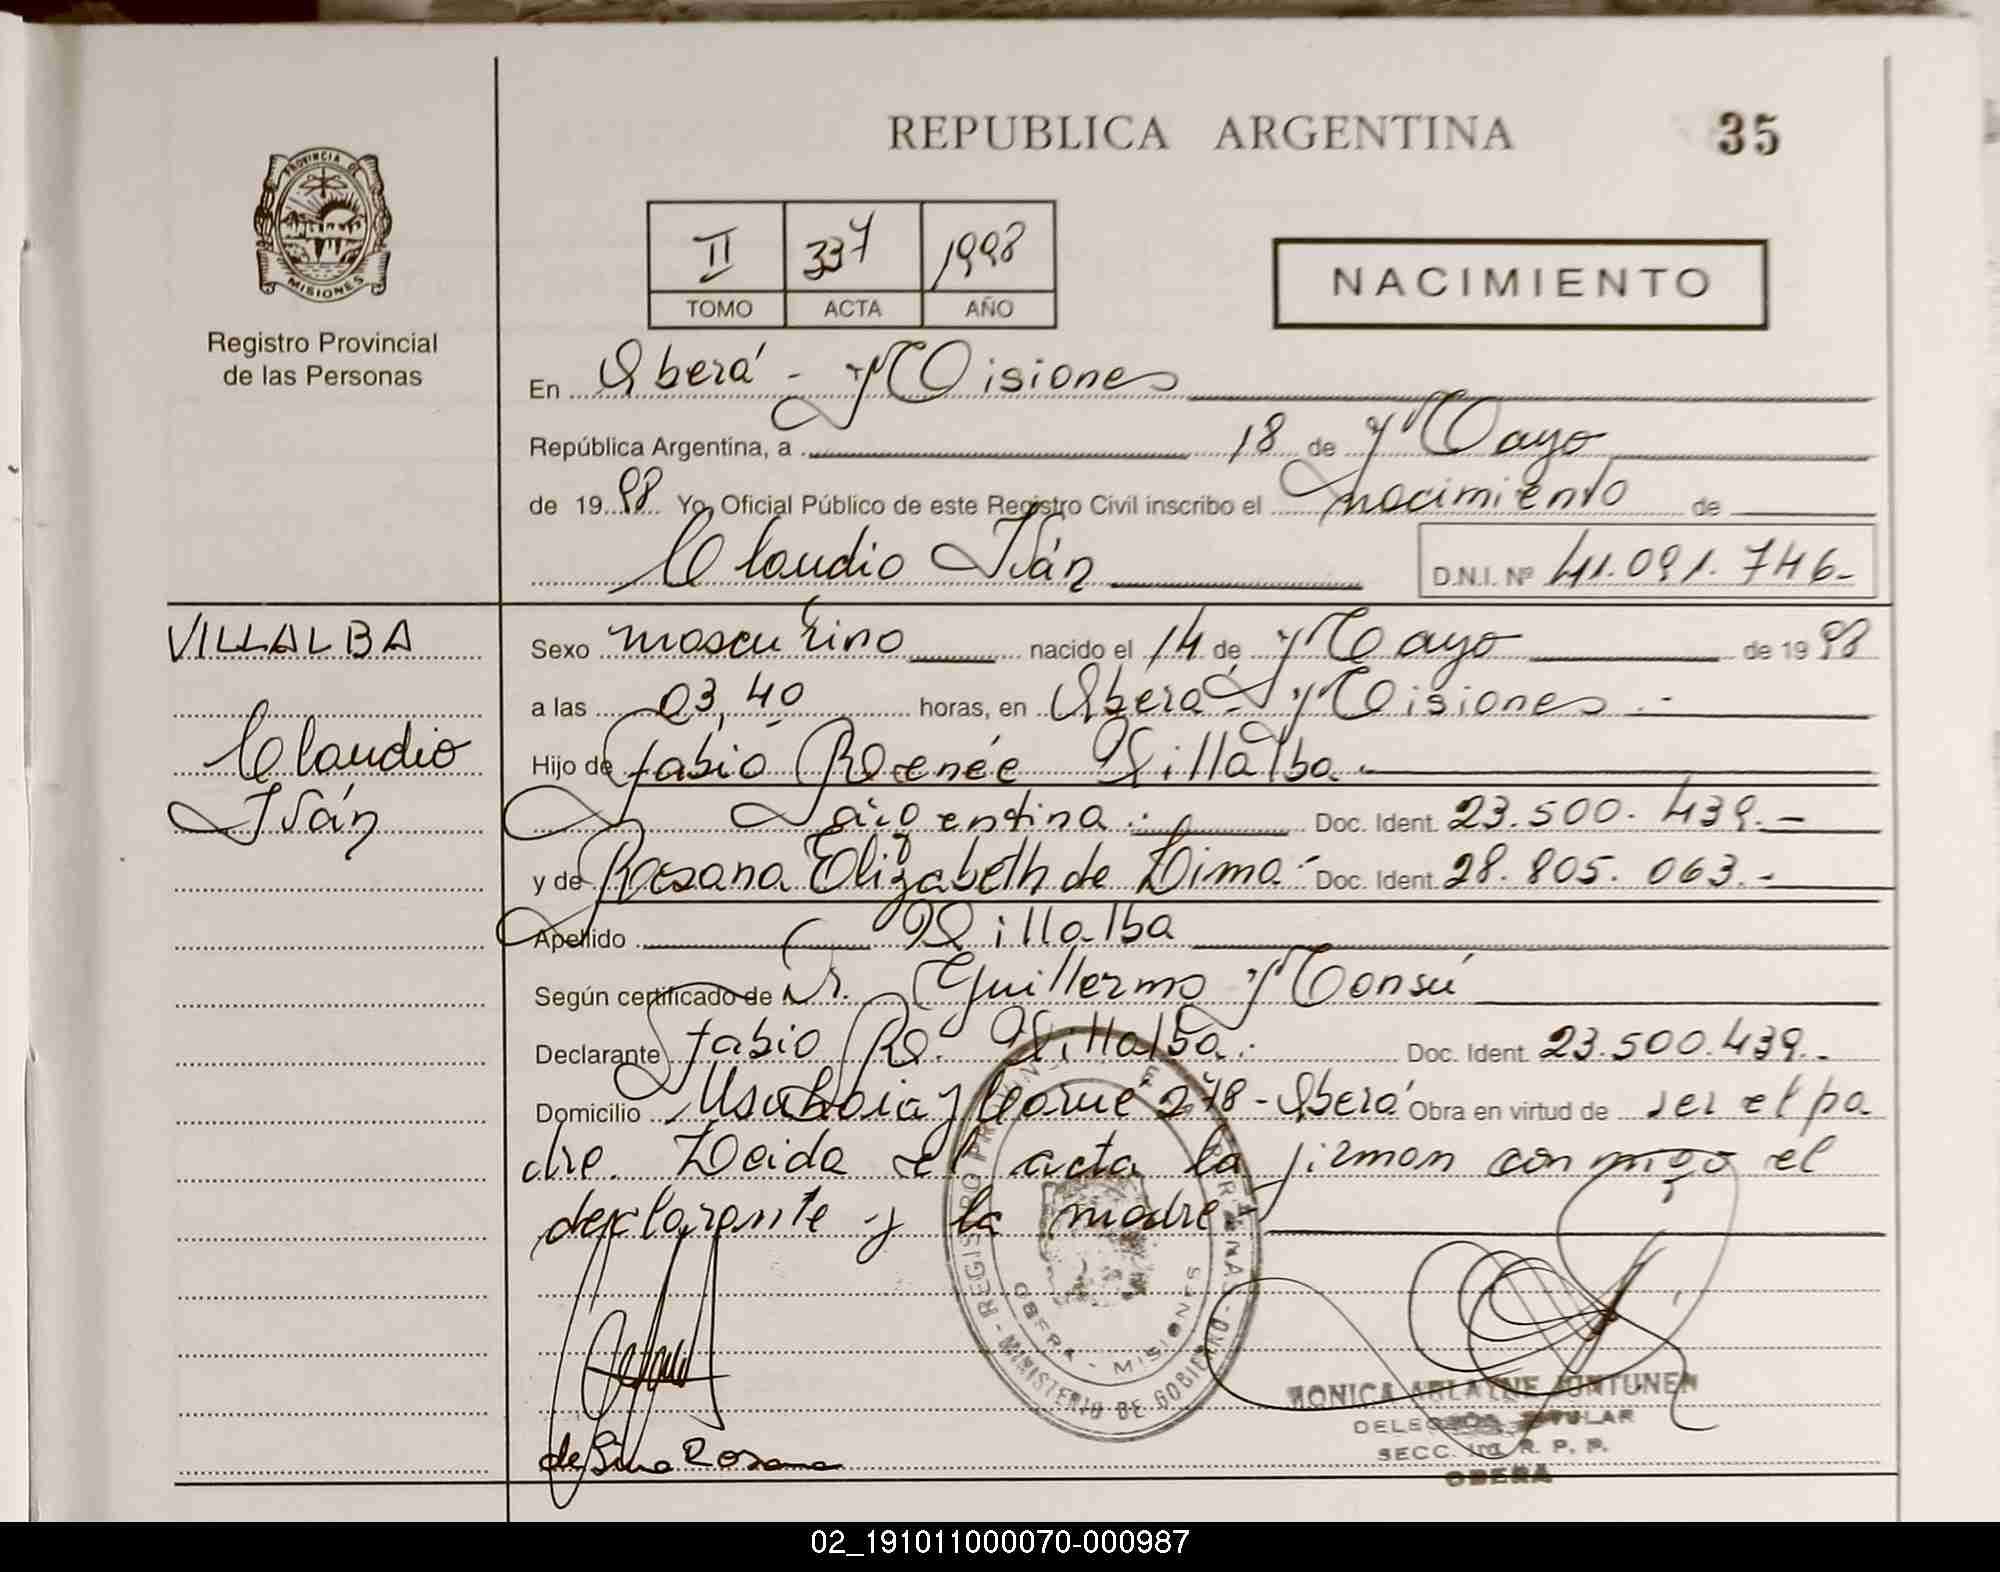 REPUBLICA ARGENTINA
35
PROVINCIA DE
MISIONES
Registro Provincial
de las Personas
II 337 1998
TOMO ACTA AÑO
NACIMIENTO
En Oberá - Misiones
República Argentina, a 18 de Mayo
de 19 98 Yo, Oficial Público de este Registro Civil inscribo el nacimiento de
Claudio Iván
D.N.I. Nº 41.091.746-
VILLALBA
Claudio
Iván
Sexo masculino nacido el 14 de Mayo de 19 98
a las 03,40 horas, en Oberá - Misiones.-
Hijo de Fabio Renée Villalba.
Argentina.- Doc. Ident. 23.500.439.-
y de Rosana Elizabeth de Lima- Doc. Ident. 28.805.063.-
Apellido Villalba
Según certificado de Dr. Guillermo Monsú
Declarante Fabio R. Villalba. Doc. Ident. 23.500.439.-
Domicilio y 278 - Oberá Obra en virtud de ser el pa
dre. Leida el acta la firman conmigo el
declarante y la madre-
REGISTRO PROVINCIAL DE LAS PERSONAS - MINISTERIO DE GOBIERNO -
OBERA - MISIONES
de Lima Rosana
MONICA ARLAINE JUNTUNEN
DELEGADA TITULAR
SECC. 1ra R. P. P.
OBERA
02_191011000070-000987